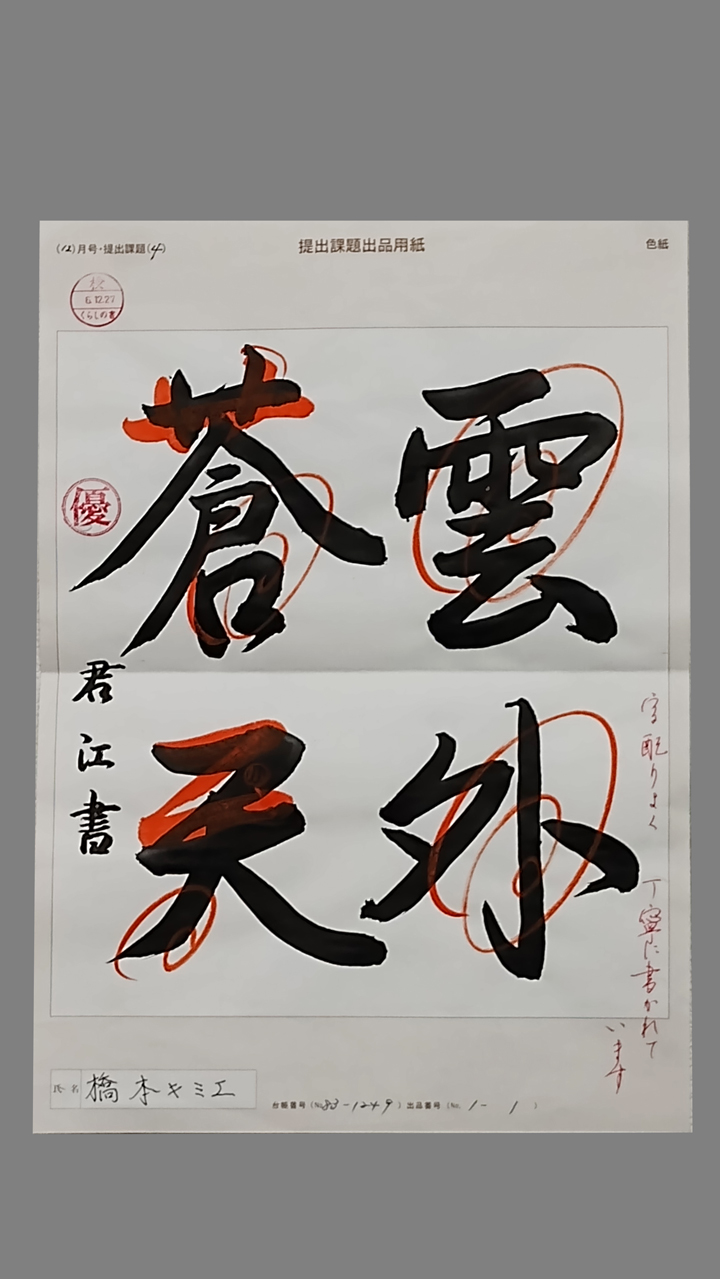 (12)月号・提出課題(4)
提出課題出品用紙
色紙
6.12.27
くらしの書
雲外
蒼天
優
君江書
字配りよく 丁寧に書かれて
います
氏名 橋本キミエ
台帳番号 (No.83-1249) 出品番号 (No. 1- 1 )